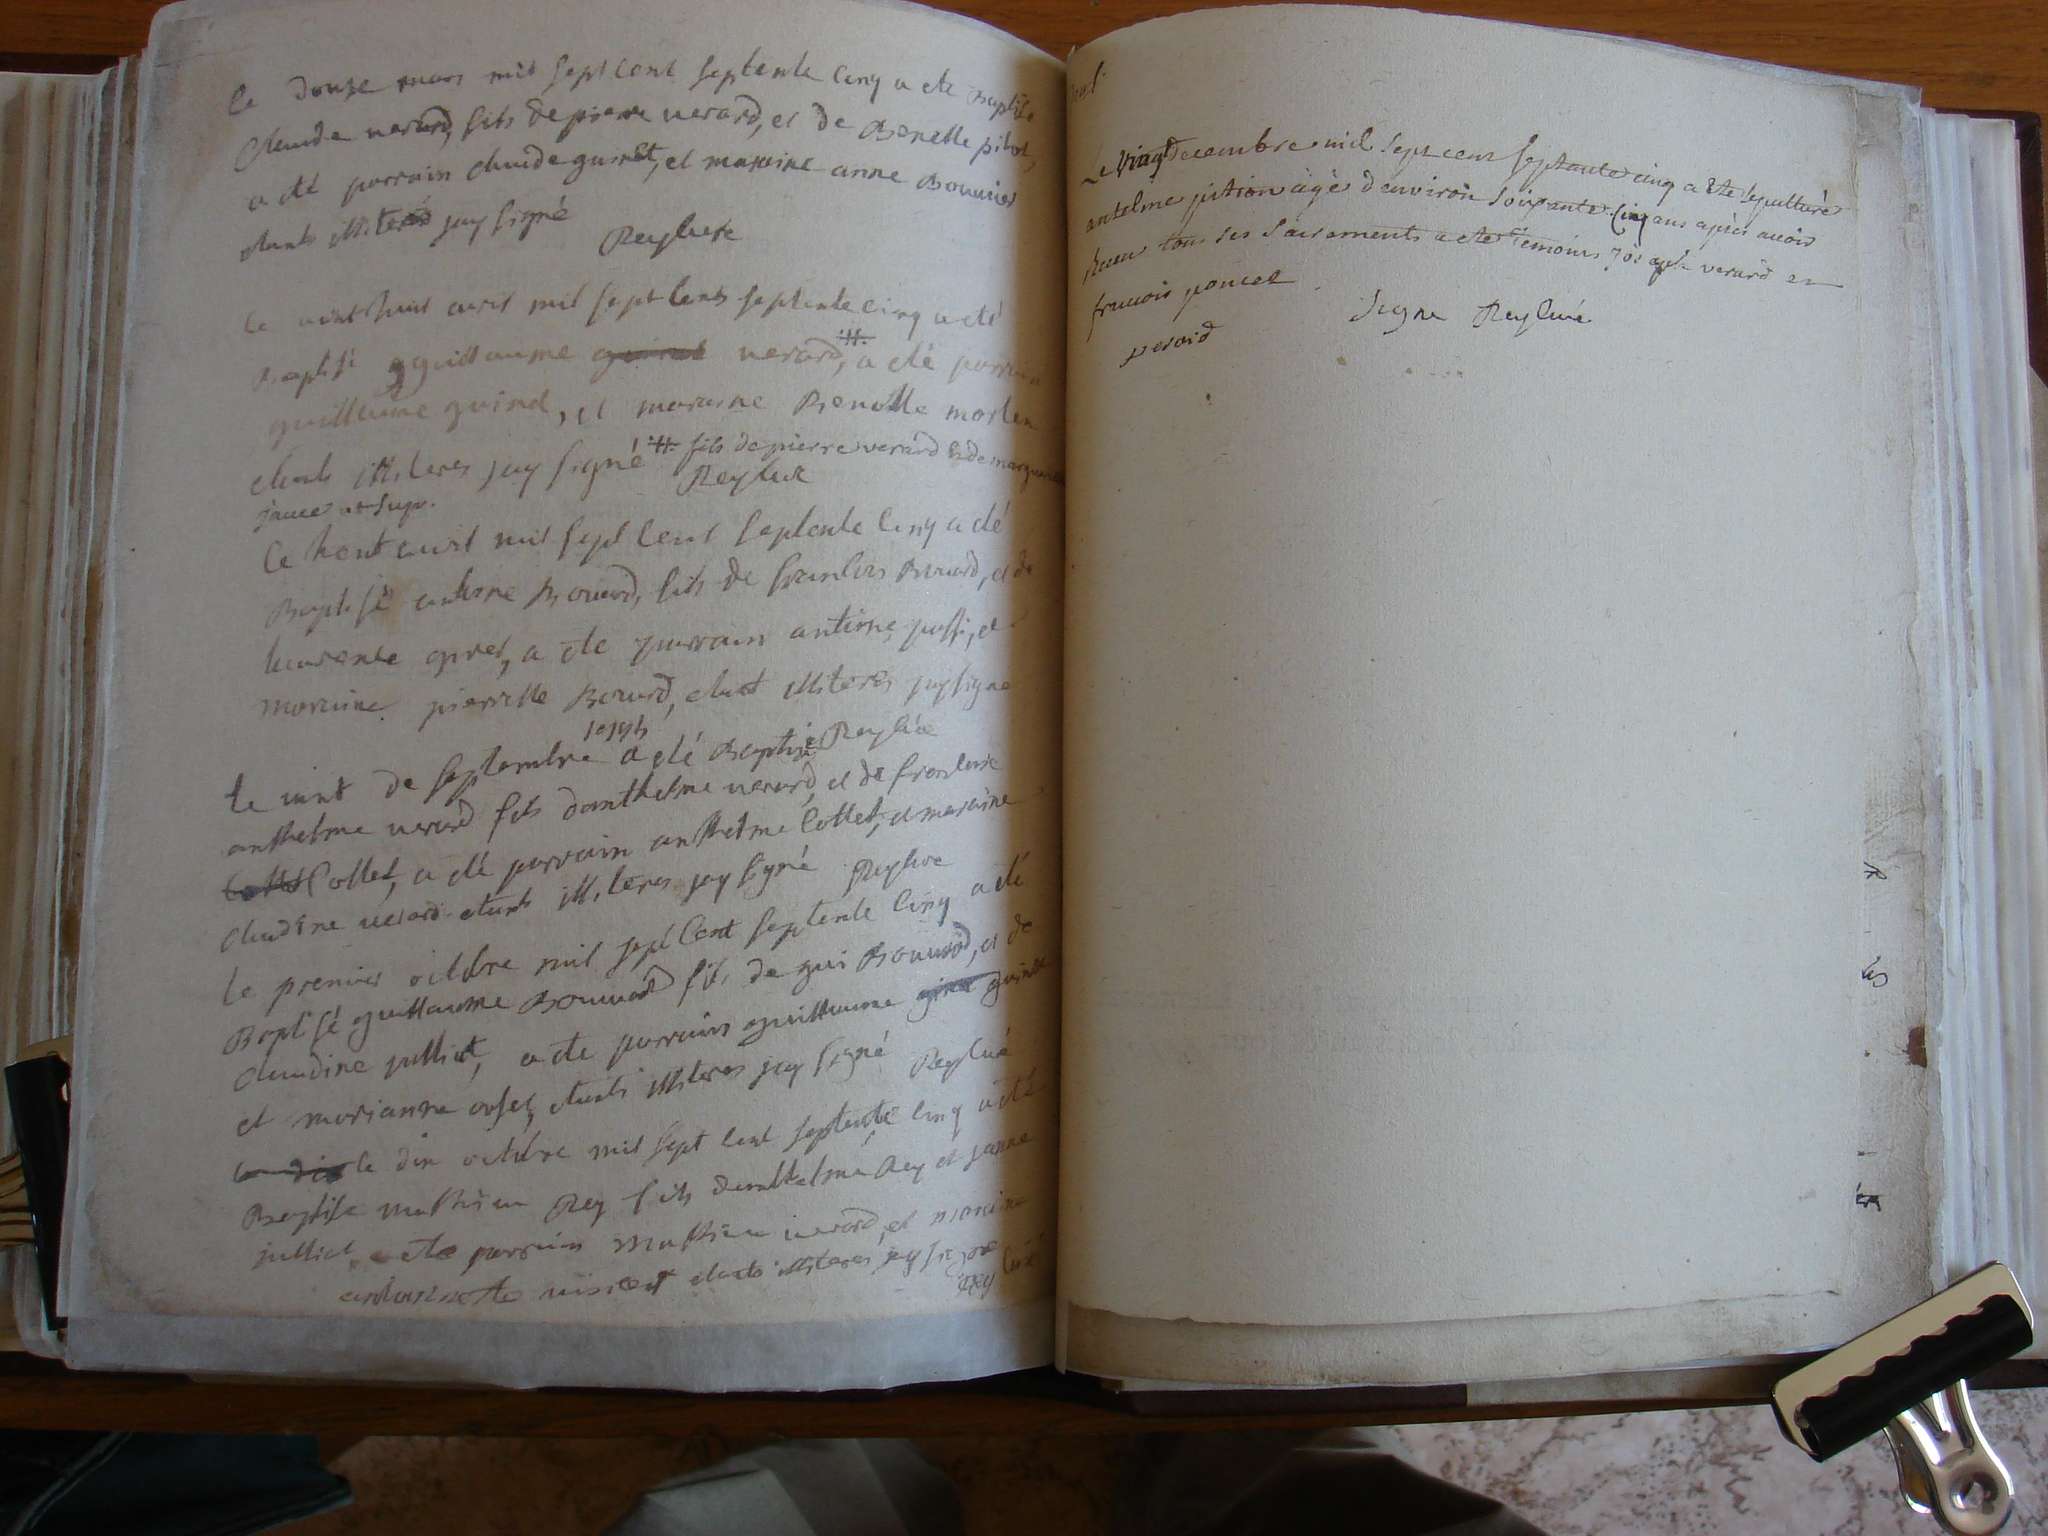 Le douse mars mil sept cent septente cinq a été Baptisé
Claude verard, fils de pierre verard, et de Benette pitiot,
a été parrain claude guinet, et maraine anne Bouvier
étants illiterés jay signé
Rey curé
Le vint huit avril mil sept cents septente cinq a été
Baptisé guillaume verard, # a été parrain
guillaume guinet, et maraine Benoitte
étants illiteres jay signé # fils de pierre verard et de marguerite
ut supr.
Rey curé
Le trent avril mil sept cent septente cinq a été
Baptisé antoine Bouard, fils de francois Bouard, et de
laurence, a été parrain antoine, et
maraine pierrette Bouard, étant illiterés jay signé
Rey curé
joseph
Le vint de septembre a été Baptisé
anthelme verard fils danthelme verard, et de francoise
Collet, a été parrain anthelme Collet, et maraine
claudine verard étants illiteres jay signé Rey curé
Le premier octobre mil sept cent septente cinq a été
Baptisé guillaume Bouvard fils de gui Bouvard, et de
claudine julliet, a été parrain guillaume guinet
et marianne, étants illiteres jay signé Rey curé
le dix octobre mil sept cent septente cinq a été
Baptisé mathieu Rey fils danthelme Rey et janne
julliet a été parrain mathieu verard, et maraine
étants illiteres jay signé
Rey curé
Le Vingt decembre mil sept cent septante cinq a été sepulturé
antelme pition agé d'environ soixante cinq ans après avoir
Recu tous ses sacrements a été temoins joseph verard et
francois poncet
Signe Rey curé
veraid